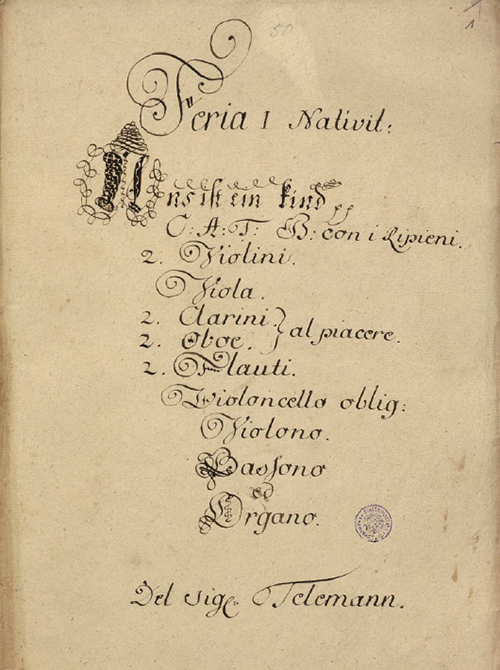 1
50
Feria I Nativit:
Uns ist ein kind pp
C: A: T: B: con i Ripieni.
2. Violini.
Viola.
2. Clarini.
2. Oboe. } al piacere.
2. Flauti.
Violoncello oblig:
Violono.
Bassono
ed
Organo.
Del Sigr. Telemann.